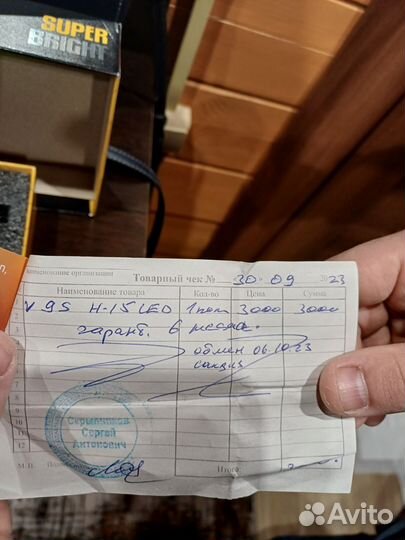 SUPER
BRIGHT
наименование организации
Товарный чек № 30 09 2023
Наименование товара Кол-во Цена Сумма
2 V9S H-15 LED 1 3000 3000
3 гарант. 6
обмен 06.10.23
7
8
9
10
11
12
Серьпников
Сергей
Антонович
М.П. Итого:
Avito